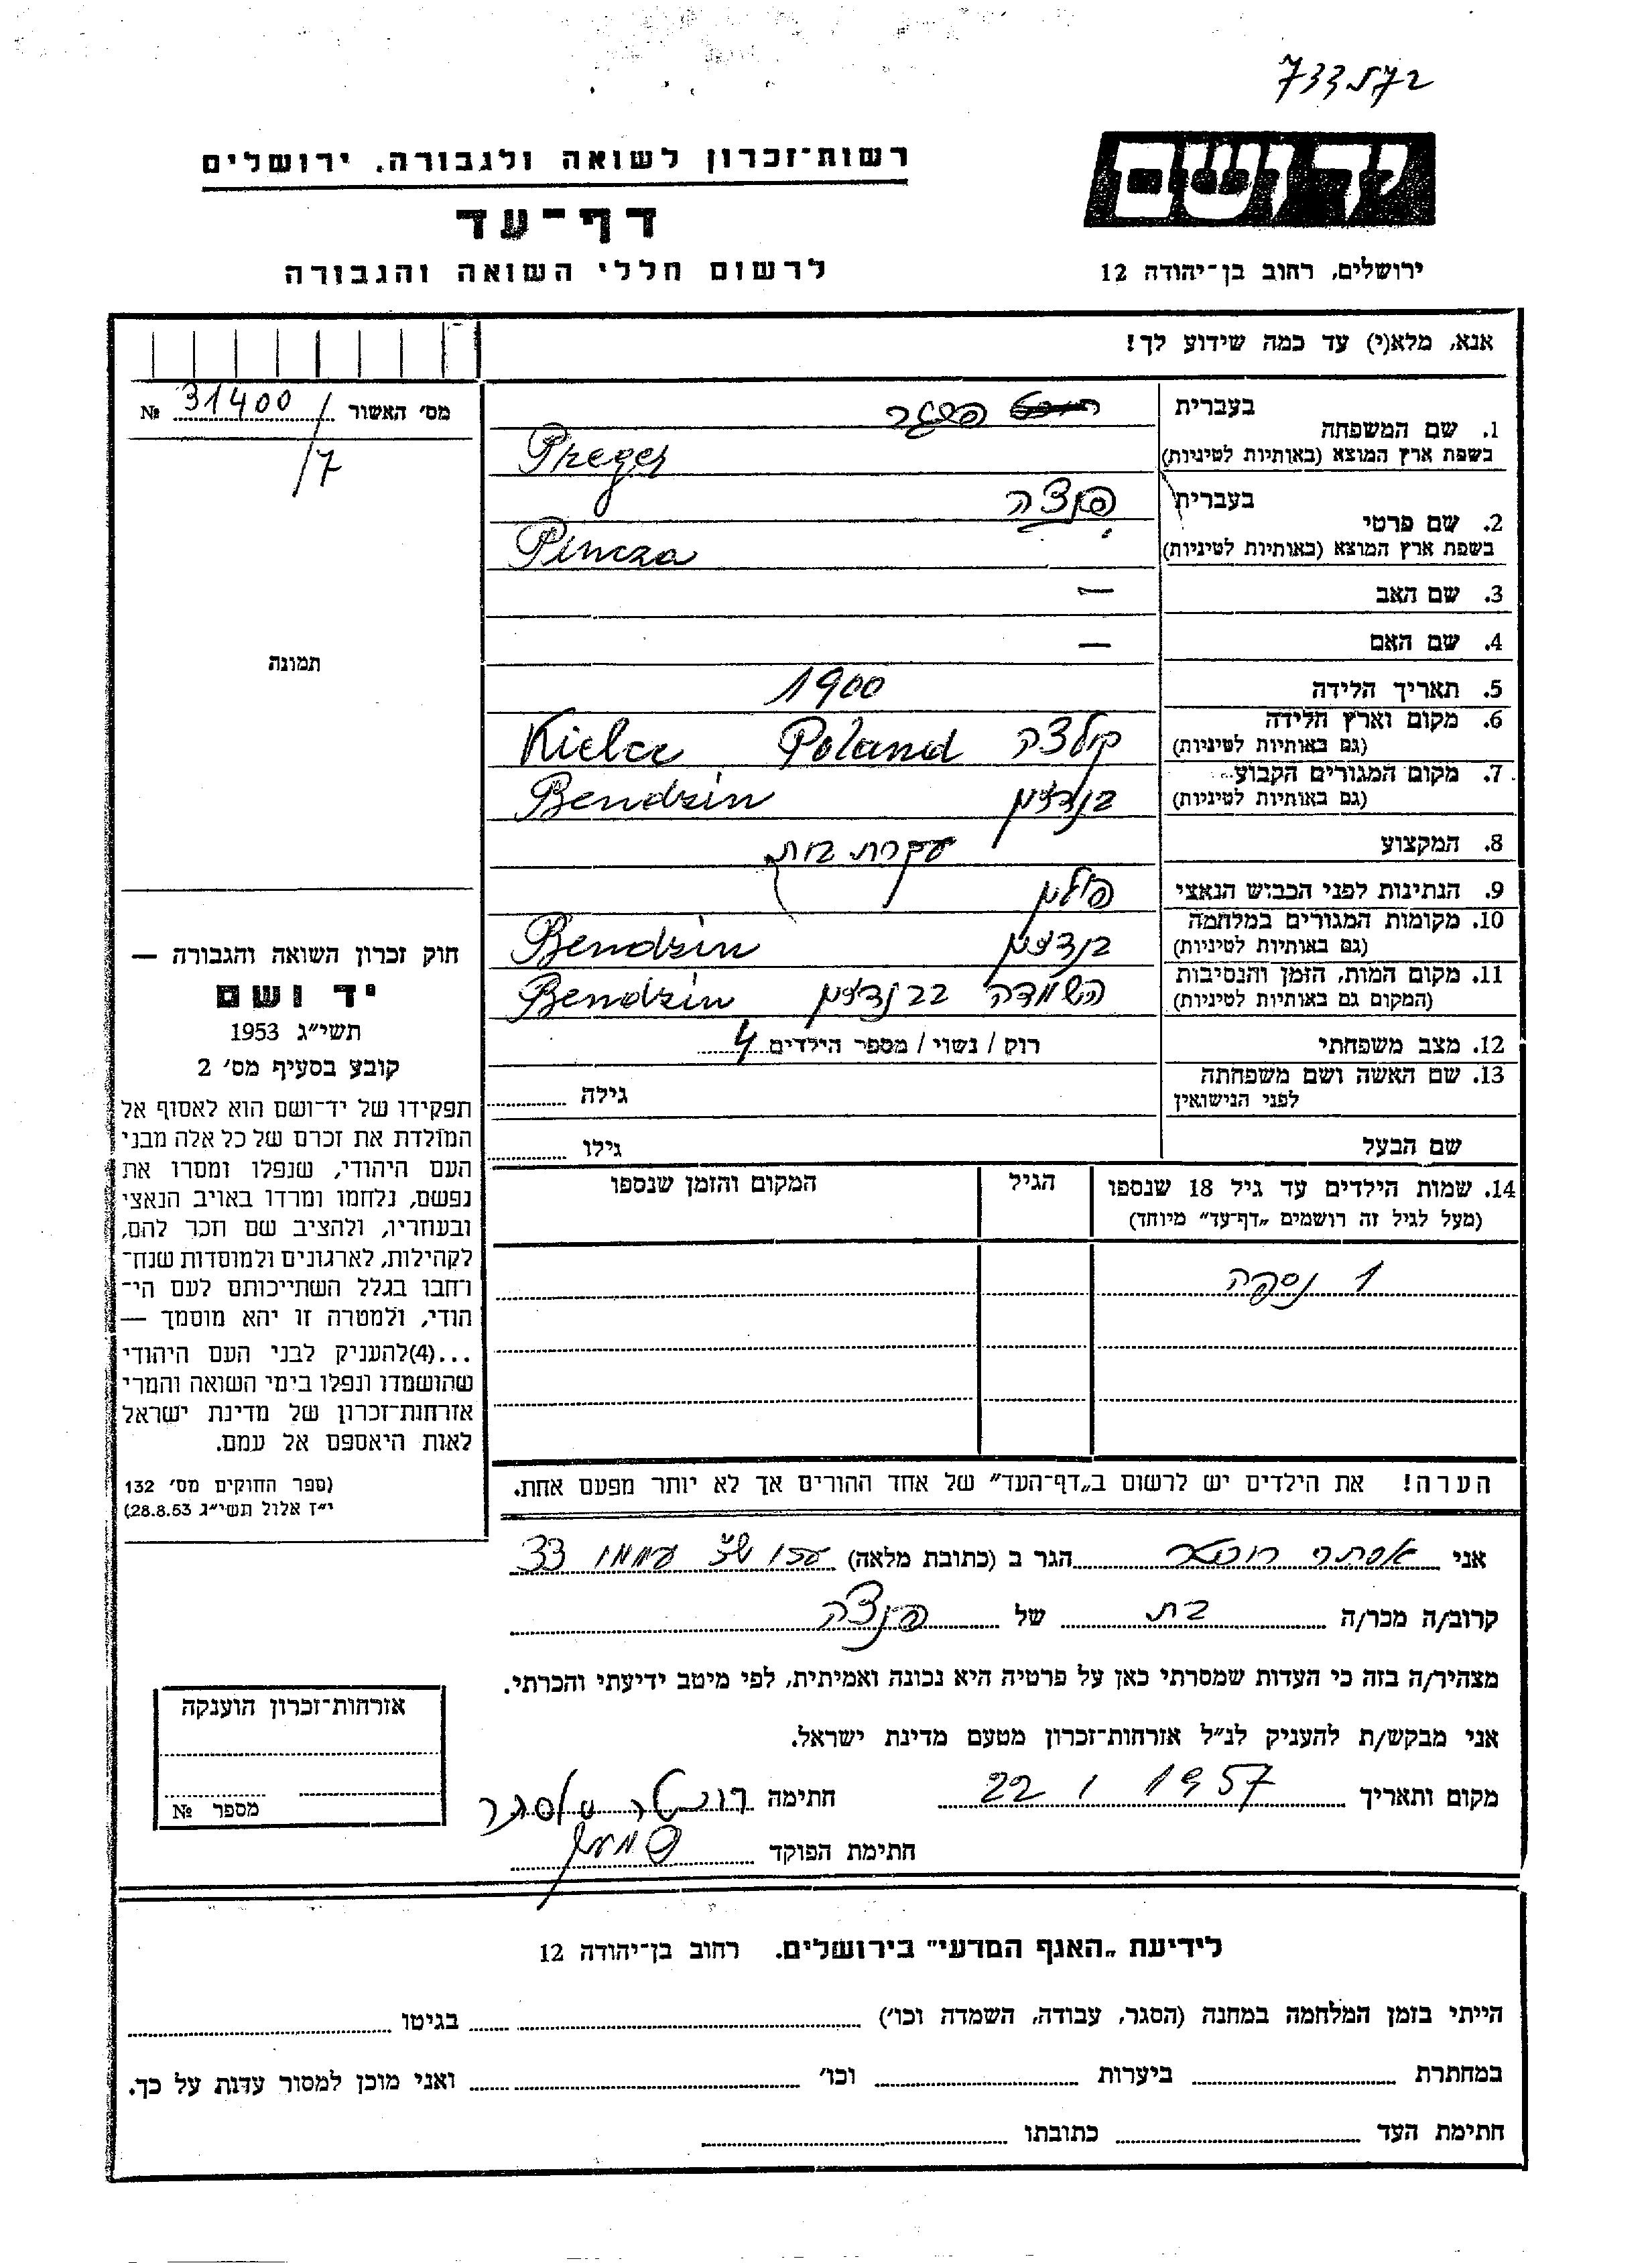 רשות־זכרון לשואה ולגבורה, ירושלים
דף־עד
לרשום חללי השואה והגבורה
יד ושם
ירושלים, רחוב בן־יהודה 12
אנא, מלא(י) עד כמה שידוע לך!
מס׳ האשור 31400 №
/7
1. שם המשפחה
בעברית
בשפת ארץ המוצא (באותיות לטיניות)
Preger
2. שם פרטי
בעברית פנצה
בשפת ארץ המוצא (באותיות לטיניות)
Pincza
3. שם האב —
4. שם האם —
5. תאריך הלידה 1900
6. מקום וארץ הלידה
(גם באותיות לטיניות)
קילצה Poland Kielce
7. מקום המגורים הקבוע
(גם באותיות לטיניות)
בנדצין Bendzin
8. המקצוע עקרת בית
9. הנתינות לפני הכבוש הנאצי פולין
10. מקומות המגורים במלחמה
(גם באותיות לטיניות)
בנדצין Bendzin
11. מקום המות, הזמן והנסיבות
(המקום גם באותיות לטיניות)
השמדה בבנדצין Bendzin
12. מצב משפחתי רוק / נשוי / מספר הילדים 4
13. שם האשה ושם משפחתה
לפני הנישואין
גילה
שם הבעל גילו
14. שמות הילדים עד גיל 18 שנספו
(מעל לגיל זה רושמים „דף־עד״ מיוחד)
הגיל
המקום והזמן שנספו
1 נספה
הערה! את הילדים יש לרשום ב„דף־העד״ של אחד ההורים אך לא יותר מפעם אחת.
תמונה
חוק זכרון השואה והגבורה —
יד ושם
תשי״ג 1953
קובע בסעיף מס׳ 2
תפקידו של יד־ושם הוא לאסוף אל
המולדת את זכרם של כל אלה מבני
העם היהודי, שנפלו ומסרו את
נפשם, נלחמו ומרדו באויב הנאצי
ובעוזריו, ולהציב שם וזכר להם,
לקהילות, לארגונים ולמוסדות שנח־
רחבו בגלל השתייכותם לעם הי־
הודי, ולמטרה זו יהא מוסמך —
...(4)להעניק לבני העם היהודי
שהושמדו ונפלו בימי השואה והמרי
אזרחות־זכרון של מדינת ישראל
לאות היאספם אל עמם.
(ספר החוקים מס׳ 132
י״ז אלול תשי״ג 28.8.53)
אני הגר ב (כתובת מלאה) 33
קרוב/ה מכר/ה בת של פנצה
מצהיר/ה בזה כי העדות שמסרתי כאן על פרטיה היא נכונה ואמיתית, לפי מיטב ידיעתי והכרתי.
אני מבקש/ת להעניק לנ״ל אזרחות־זכרון מטעם מדינת ישראל.
מקום ותאריך 22 1 1957 חתימה
חתימת הפוקד
אזרחות־זכרון הוענקה
מספר №
לידיעת „האנף המדעי״ בירושלים. רחוב בן־יהודה 12
הייתי בזמן המלחמה במחנה (הסגר, עבודה, השמדה וכו׳) בגיטו
במחתרת ביערות וכו׳ ואני מוכן למסור עדות על כך.
חתימת העד כתובתו